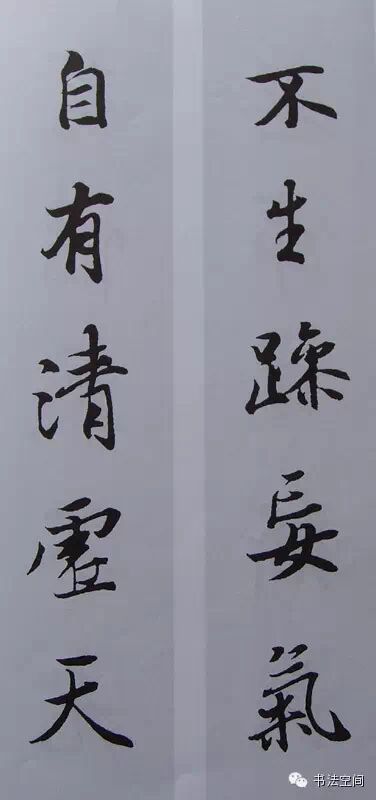 不生躁妄氣
自有清虛天
书法空间